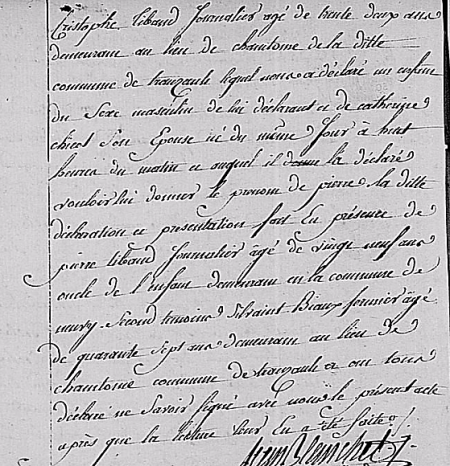 Cristophe tibaud Journalier agé de trente deux ans
demeurant au lieu de chantome de la ditte
commune de tranzault lequel nous a déclaré un enfant
du Sexe masculin de lui déclarant et de catherine
chicot Son Epouse né du même Jour à huit
heures du matin et auquel il donne la déclaré
vouloir lui donner le prenom de pierre la ditte
déclaration et presentation fait En présence de
pierre tibaud Journalier âgé de vingt neuf ans
oncle de l'enfant demeurant en la commune de
mers Second temoin Silvaint Biaux fournier âgé
de quarante Sept ans demeurant au lieu de
chantome commune de tranzault et ont tous
déclaré ne Savoir signé avec nous le présent acte
après que la lecture leur En a été faite
Jean Blanchet